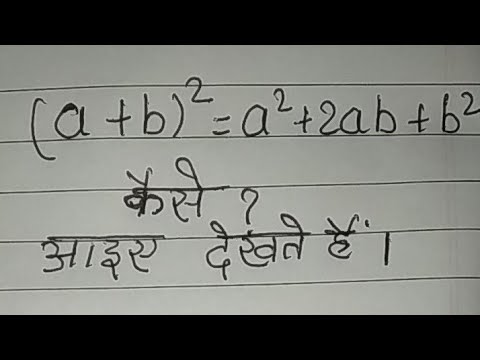 (a+b)² = a²+2ab+b²
कैसे ?
आइए देखते हैं।